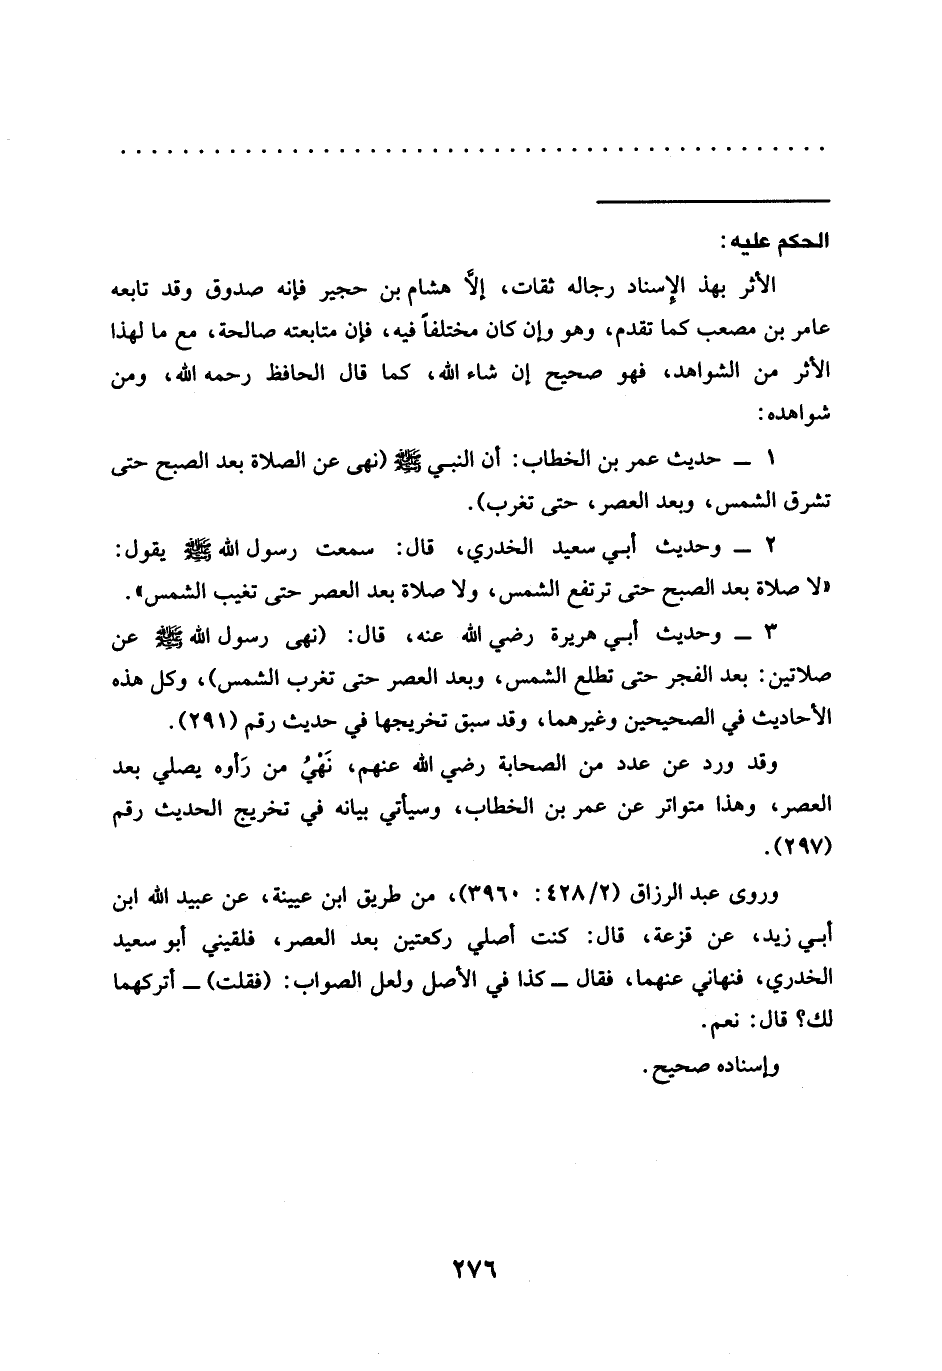 . . . . . . . . . . . . . . . . . . . . . . . . . . . . . . . . . . . . . . . . . . . . . .
الحكم عليه:
الأثر بهذ الإسناد رجاله ثقات، إلاَّ هشام بن حجير فإنه صدوق وقد تابعه
عامر بن مصعب كما تقدم، وهو وإن كان مختلفاً فيه، فإن متابعته صالحة، مع ما لهذا
الأثر من الشواهد، فهو صحيح إن شاء الله، كما قال الحافظ رحمه الله، ومن
شواهده:
١ ــ حديث عمر بن الخطاب: أن النبـي ﷺ (نهى عن الصلاة بعد الصبح حتى
تشرق الشمس، وبعد العصر، حتى تغرب).
٢ ــ وحديث أبـي سعيد الخدري، قال: سمعت رسول الله ﷺ يقول:
«لا صلاة بعد الصبح حتى ترتفع الشمس، ولا صلاة بعد العصر حتى تغيب الشمس».
٣ ــ وحديث أبـي هريرة رضي الله عنه، قال: (نهى رسول الله ﷺ عن
صلاتين: بعد الفجر حتى تطلع الشمس، وبعد العصر حتى تغرب الشمس)، وكل هذه
الأحاديث في الصحيحين وغيرهما، وقد سبق تخريجها في حديث رقم (٢٩١).
وقد ورد عن عدد من الصحابة رضي الله عنهم، نَهْيُ من رَأوه يصلي بعد
العصر، وهذا متواتر عن عمر بن الخطاب، وسيأتي بيانه في تخريج الحديث رقم
(٢٩٧).
وروى عبد الرزاق (٤٢٨/٢: ٣٩٦٠)، من طريق ابن عيينة، عن عبيد الله ابن
أبـي زيد، عن قزعة، قال: كنت أصلي ركعتين بعد العصر، فلقيني أبو سعيد
الخدري، فنهاني عنهما، فقال ــ كذا في الأصل ولعل الصواب: (فقلت) ــ أتركهما
لك؟ قال: نعم.
وإسناده صحيح.
٢٧٦